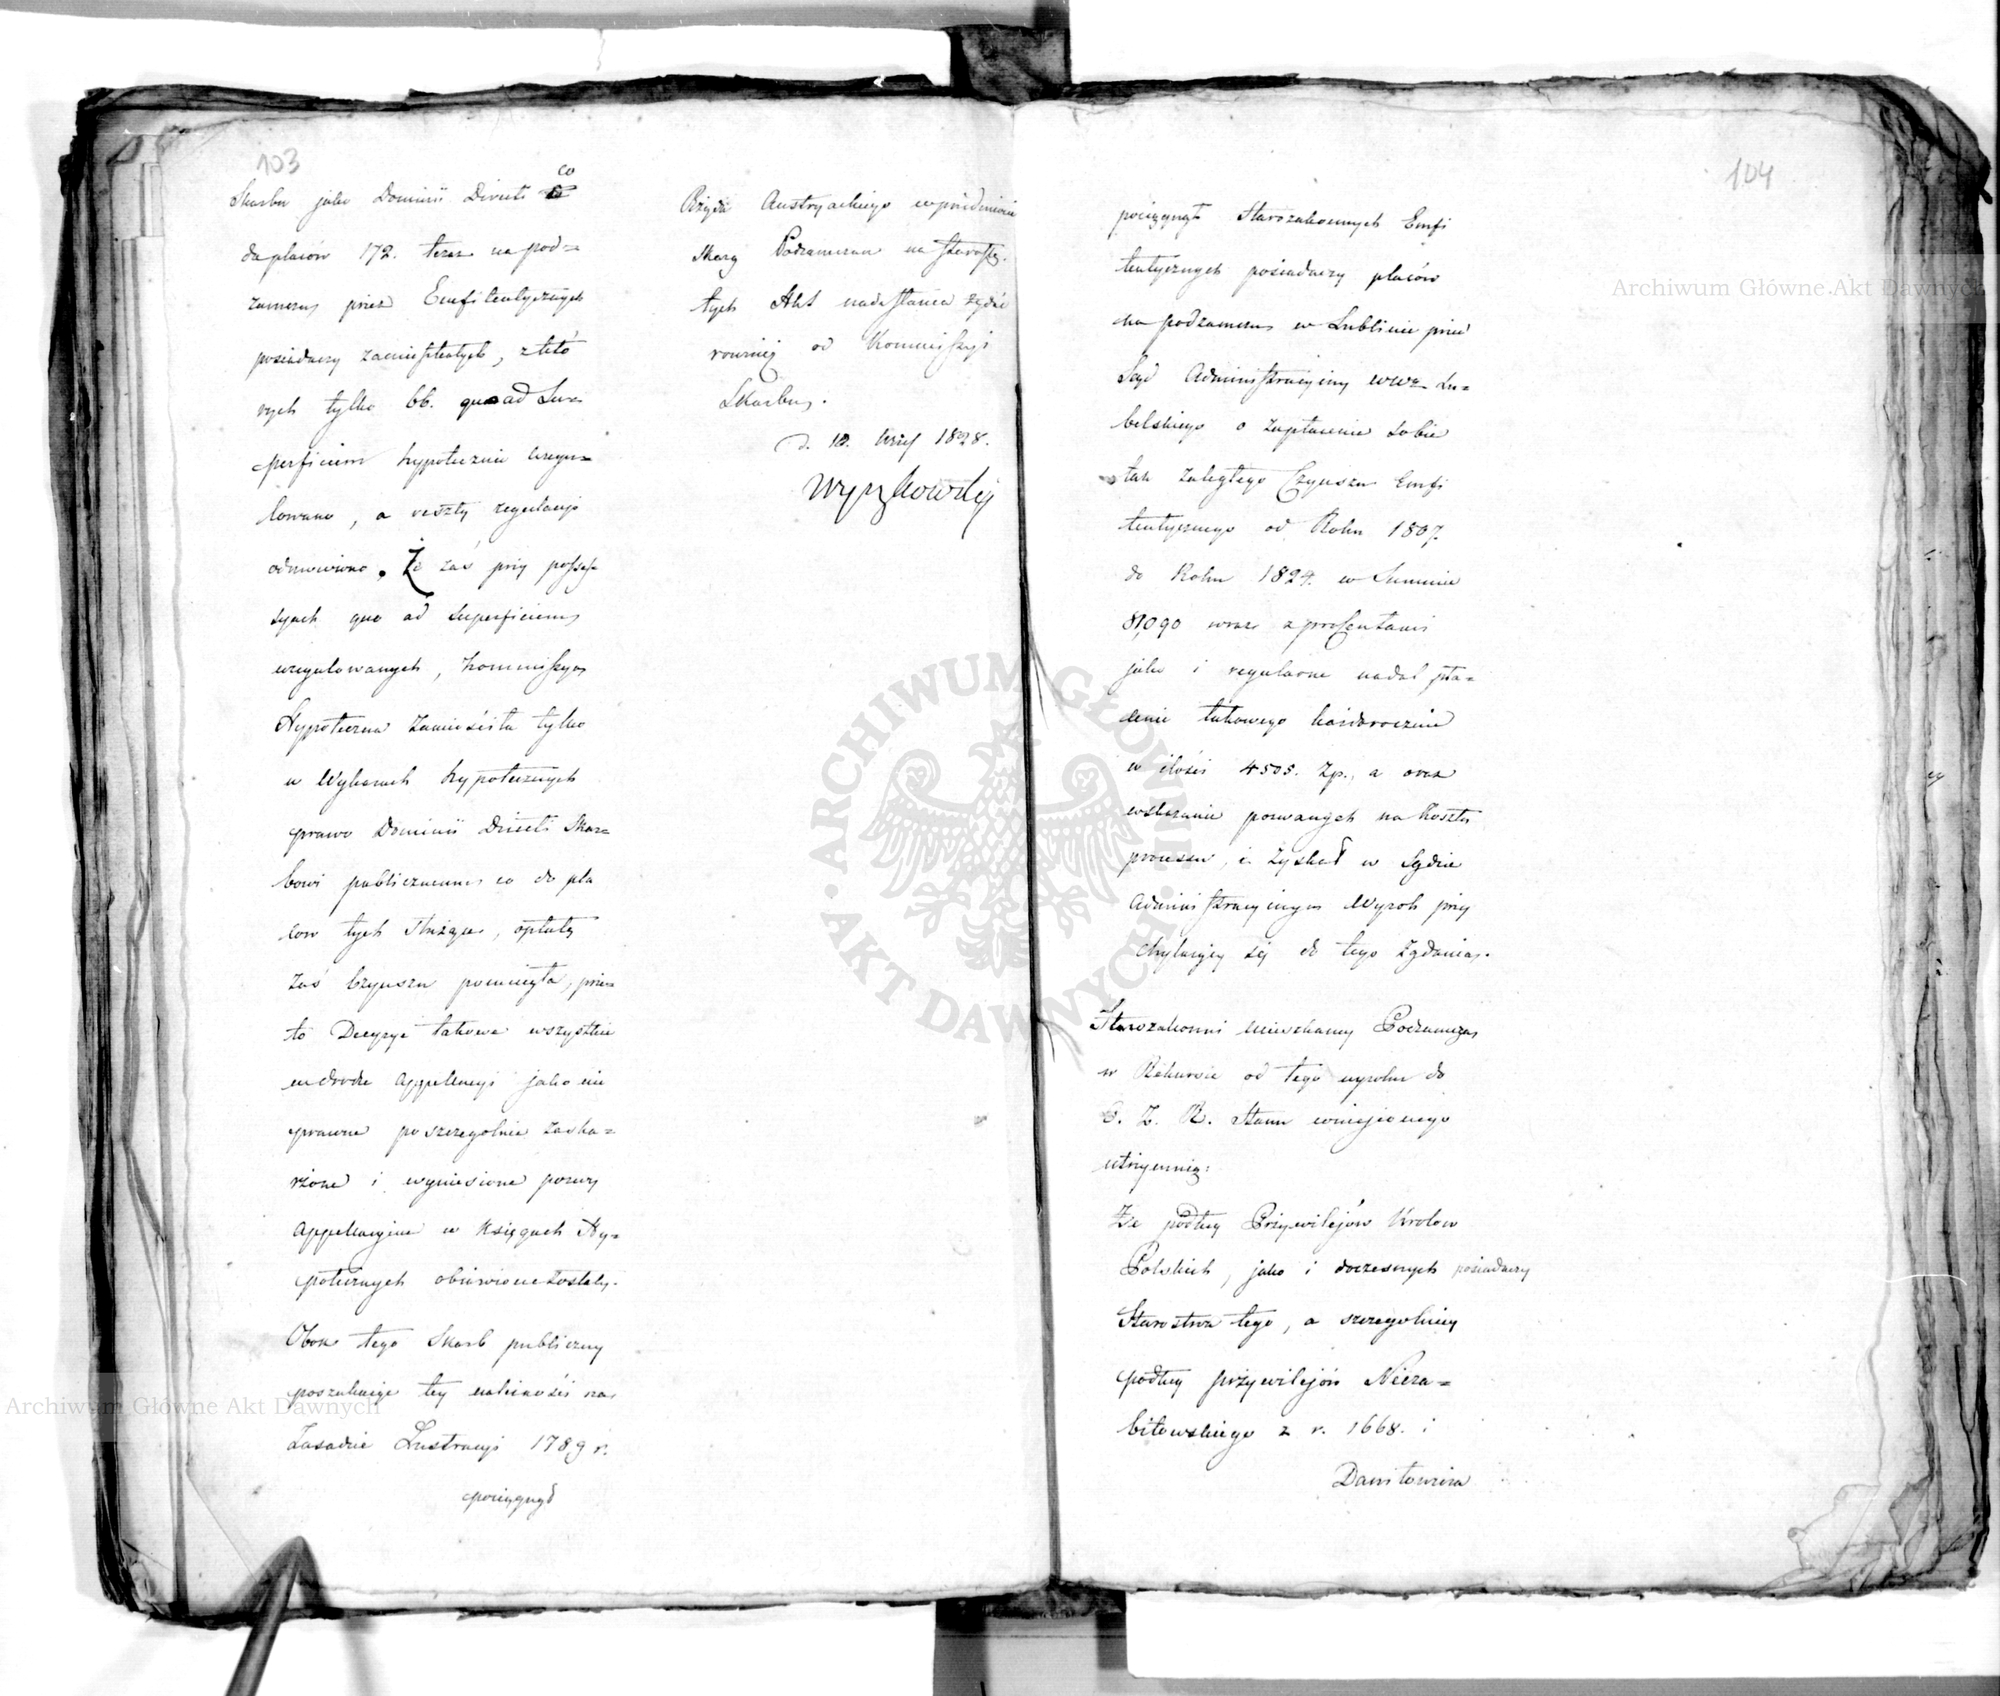 103
Skarbu jako Dominii Directi co
do placów 172. teraz na pod=
zamczu przez Emfiteutycznych
posiadaczy zamieszkałych, z któ
rych tylko 66. quoad Su=
perficiem hypotecznie uregu=
lowano, a reszty regulacyi
odmówiono. Że zaś przy possess=
syach quo ad Superficiem
uregulowanych, Kommissya
Hypoteczna zamieściła tylko
w Wykazach hypotecznych
prawo Dominii Directi Skar=
bowi publicznemu co do pla
ców tych służące, opłatę
zaś Czynszu pominęła, prze=
to Decyzye takowe wszystkie
w drodze Appellacyi jako nie
prawne poszczególnie zaska=
rżone i wyniesione pozwy
Appellacyjne w Księgach Hy=
potecznych obiawione zostały.
Obok tego Skarb publiczny
poszukuiąc tey należności na
Zasadzie Lustracyi 1789 r.
pociągnął
Rządu Austryackiego względnie
Skarg Podzamczan na Starostę.
tych Akt nadesłania żądać
rowniez od Kommissyi
Skarbu.
d. 10. 1828.
Wyczkowski
104
pociągnął Starozakonnych Emfi
teutycznych posiadaczy placów
na podzamczu w Lublinie przed
Sąd Administracyiny Wwa Lu=
belskiego o zapłacenie sobie
tak zaległego Czynszu Emfi
teutycznego od Roku 1807.
do Roku 1824. w Summie
81,090 wraz z procentami
jako i regularne nadal pła=
cenie takowego każdorocznie
w ilości 4505. Zp., a oraz
wskazanie pozwanych na Koszta
processu, i zyskał w Sądzie
Administracyinym Wyrok przy
chylaiący się do tego żądania.
Starozakonni mieszkańcy Podzamcza
w Rekursie od tego wyroku do
S. Z. R. Stanu wniesionego
utrzymuią:
Że podług Przywilejów Krolow
Polskich, jako i doczesnych posiadaczy
Starostwa tego, a szczególniey
podług przywilejów Nieza=
bitowskiego z r. 1668. i
Daniłowicza
Archiwum Główne Akt Dawnych
Archiwum Główne Akt Dawnych
· ARCHIWUM GŁÓWNE · AKT DAWNYCH